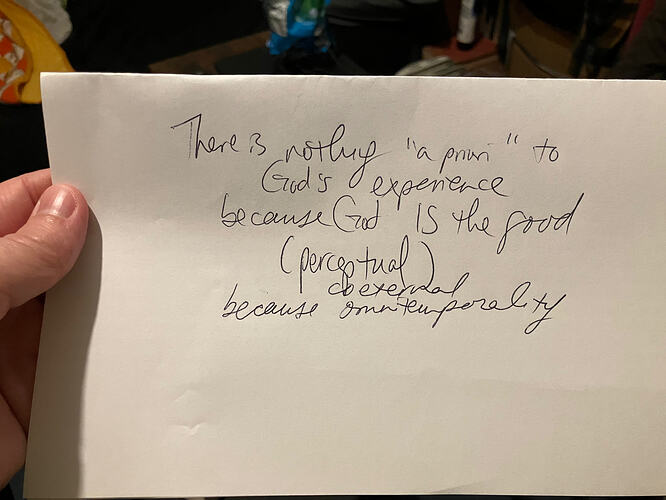 There is nothing "a priori" to
God's experience
because God IS the good
(perceptual)
coeternal
because omnitemporality